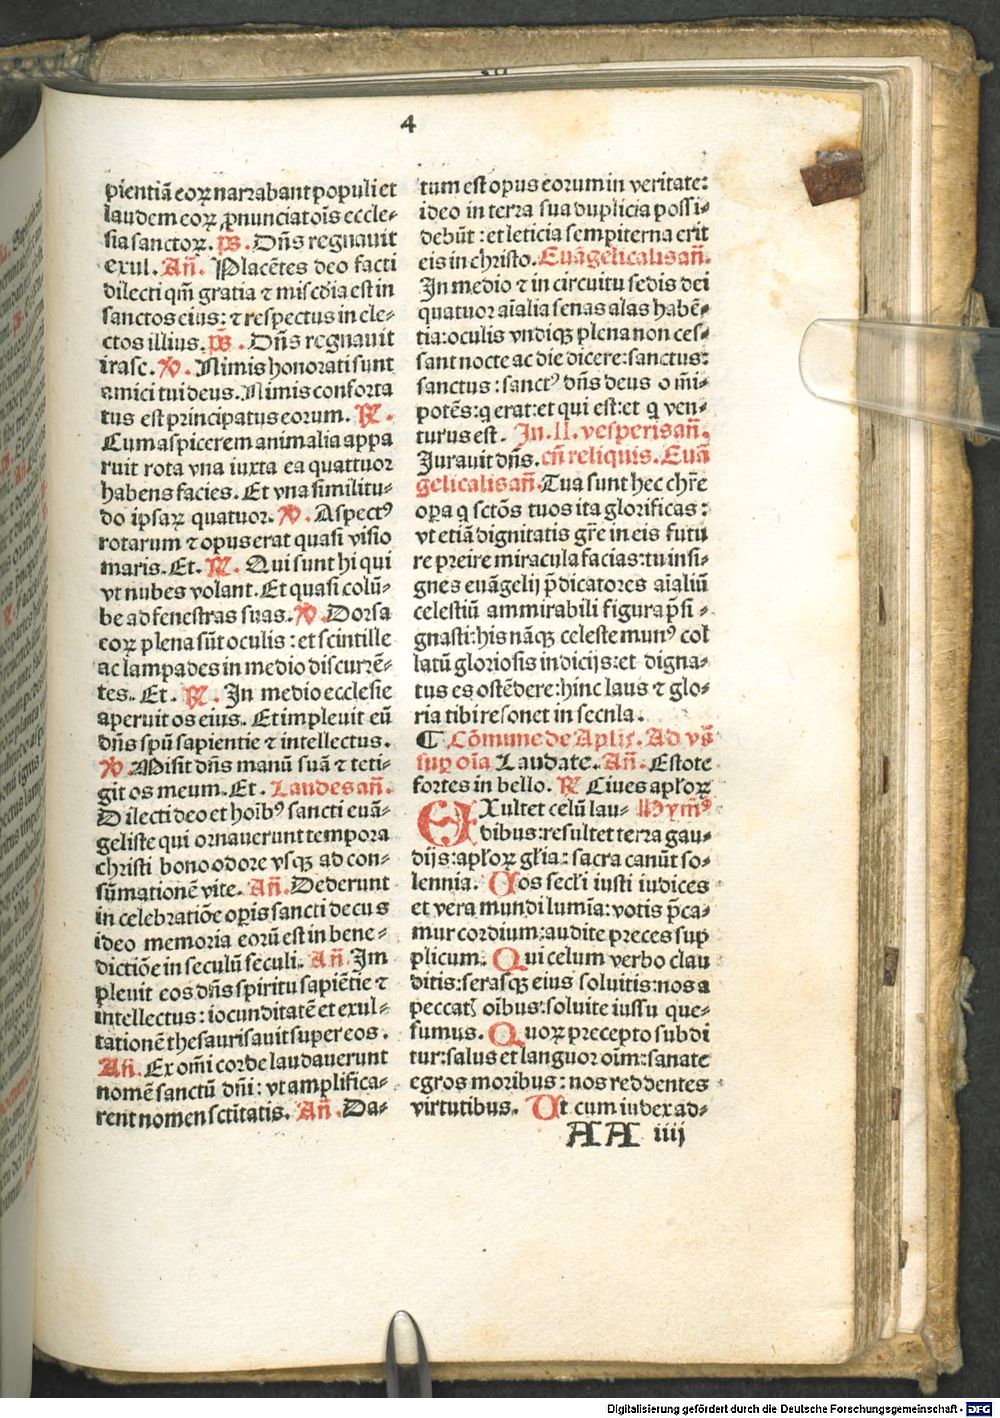 4
pientiā eoꝝ narrabant populi et
laudem eoꝝ ꝓnunciat oīs eccle-
sia sanctoꝝ. p̄s. Dn̄s regnauit
exul. An̄. Placētes deo facti
dilecti qm̄ gratia ⁊ misc̄dia est in
sanctos eius: ⁊ respectus in ele-
ctos illius. p̄s. Dn̄s regnauit
irasc. ℣. Nimis honorati sunt
amici tui deus. Nimis conforta
tus est principatus eorum. ℟.
Cum aspicerem animalia appa
ruit rota vna iuxta ea quattuor
habens facies. Et vna similitu-
do ipsaꝝ quatuor. ℣. Aspectꝰ
rotarum ⁊ opus erat quasi visio
maris. Et. ℟. Qui sunt hi qui
vt nubes volant. Et quasi colū-
be ad fenestras suas. ℣. Dorsa
eoꝝ plena sūt oculis: et scintille
ac lampades in medio discurrē-
tes. Et. ℟. In medio ecclesie
aperuit os eius. Et impleuit eū
dn̄s spū sapientie ⁊ intellectus.
℣. Misit dn̄s manū suā ⁊ teti-
git os meum. Et. Laudes an̄.
Dilecti deo et hoībꝰ sancti euā-
geliste qui ornauerunt tempora
christi bono odore vsqꝫ ad con-
sūmationē vite. An̄. Dederunt
in celebratiōe oꝑis sancti decus
ideo memoria eorū est in bene-
dictiōe in seculū seculi. An̄. Im
pleuit eos dn̄s spiritu sapiētie ⁊
intellectus: iocunditatē et exul-
tationē thesaurisauit super eos.
An̄. Ex om̄i corde laudauerunt
nomē sanctū dn̄i: vt amplifica-
rent nomen sc̄titatis. An̄. Da-
tum est opus eorum in veritate:
ideo in terra sua duplicia possi-
debūt: et leticia sempiterna erit
eis in christo. Euāgelicalis an̄.
In medio ⁊ in circuitu sedis dei
quatuor aīalia senas alas habē-
tia: oculis vndiqꝫ plena non ces-
sant nocte ac die dicere: sanctus:
sanctus: sanctꝰ dn̄s deus om̄i-
potēs: q erat: et qui est: et q ven-
turus est. In .II. vesperis an̄.
Jurauit dn̄s. cū reliquis. Euā
gelicalis an̄. Tua sunt hec chr̄e
oꝑa q sctōs tuos ita glorificas:
vt etiā dignitatis gr̄e in eis futu
re preire miracula facias: tu insi-
gnes euāgelij p̄dicatores aīaliū
celestiū ammirabili figura p̄si-
gnasti: his nāqꝫ celeste munꝰ col
latū gloriosis indicijs: et digna-
tus es ostēdere: hinc laus ⁊ glo-
ria tibi resonet in secula.
¶ Cōmune de Aplis. Ad vs̄
suꝑ oīa Laudate. An̄. Estote
fortes in bello. ℟ Ciues apłoꝝ
EXultet celū lau- Hymꝰ
dibus: resultet terra gau-
dijs: apłoꝝ głia: sacra canūt so-
lennia. Uos secli iusti iudices
et vera mundi lumīa: votis p̄ca-
mur cordium: audite preces sup
plicum. Qui celum verbo clau
ditis: serasqꝫ eius soluitis: nos a
peccatꝭ oībus: soluite iussu que-
sumus. Quoꝝ precepto subdi
tur: salus et languor oīm: sanate
egros moribus: nos reddentes
virtutibus. Ut cum iudex ad-
AA iiij
Digitalisierung gefördert durch die Deutsche Forschungsgemeinschaft - DFG